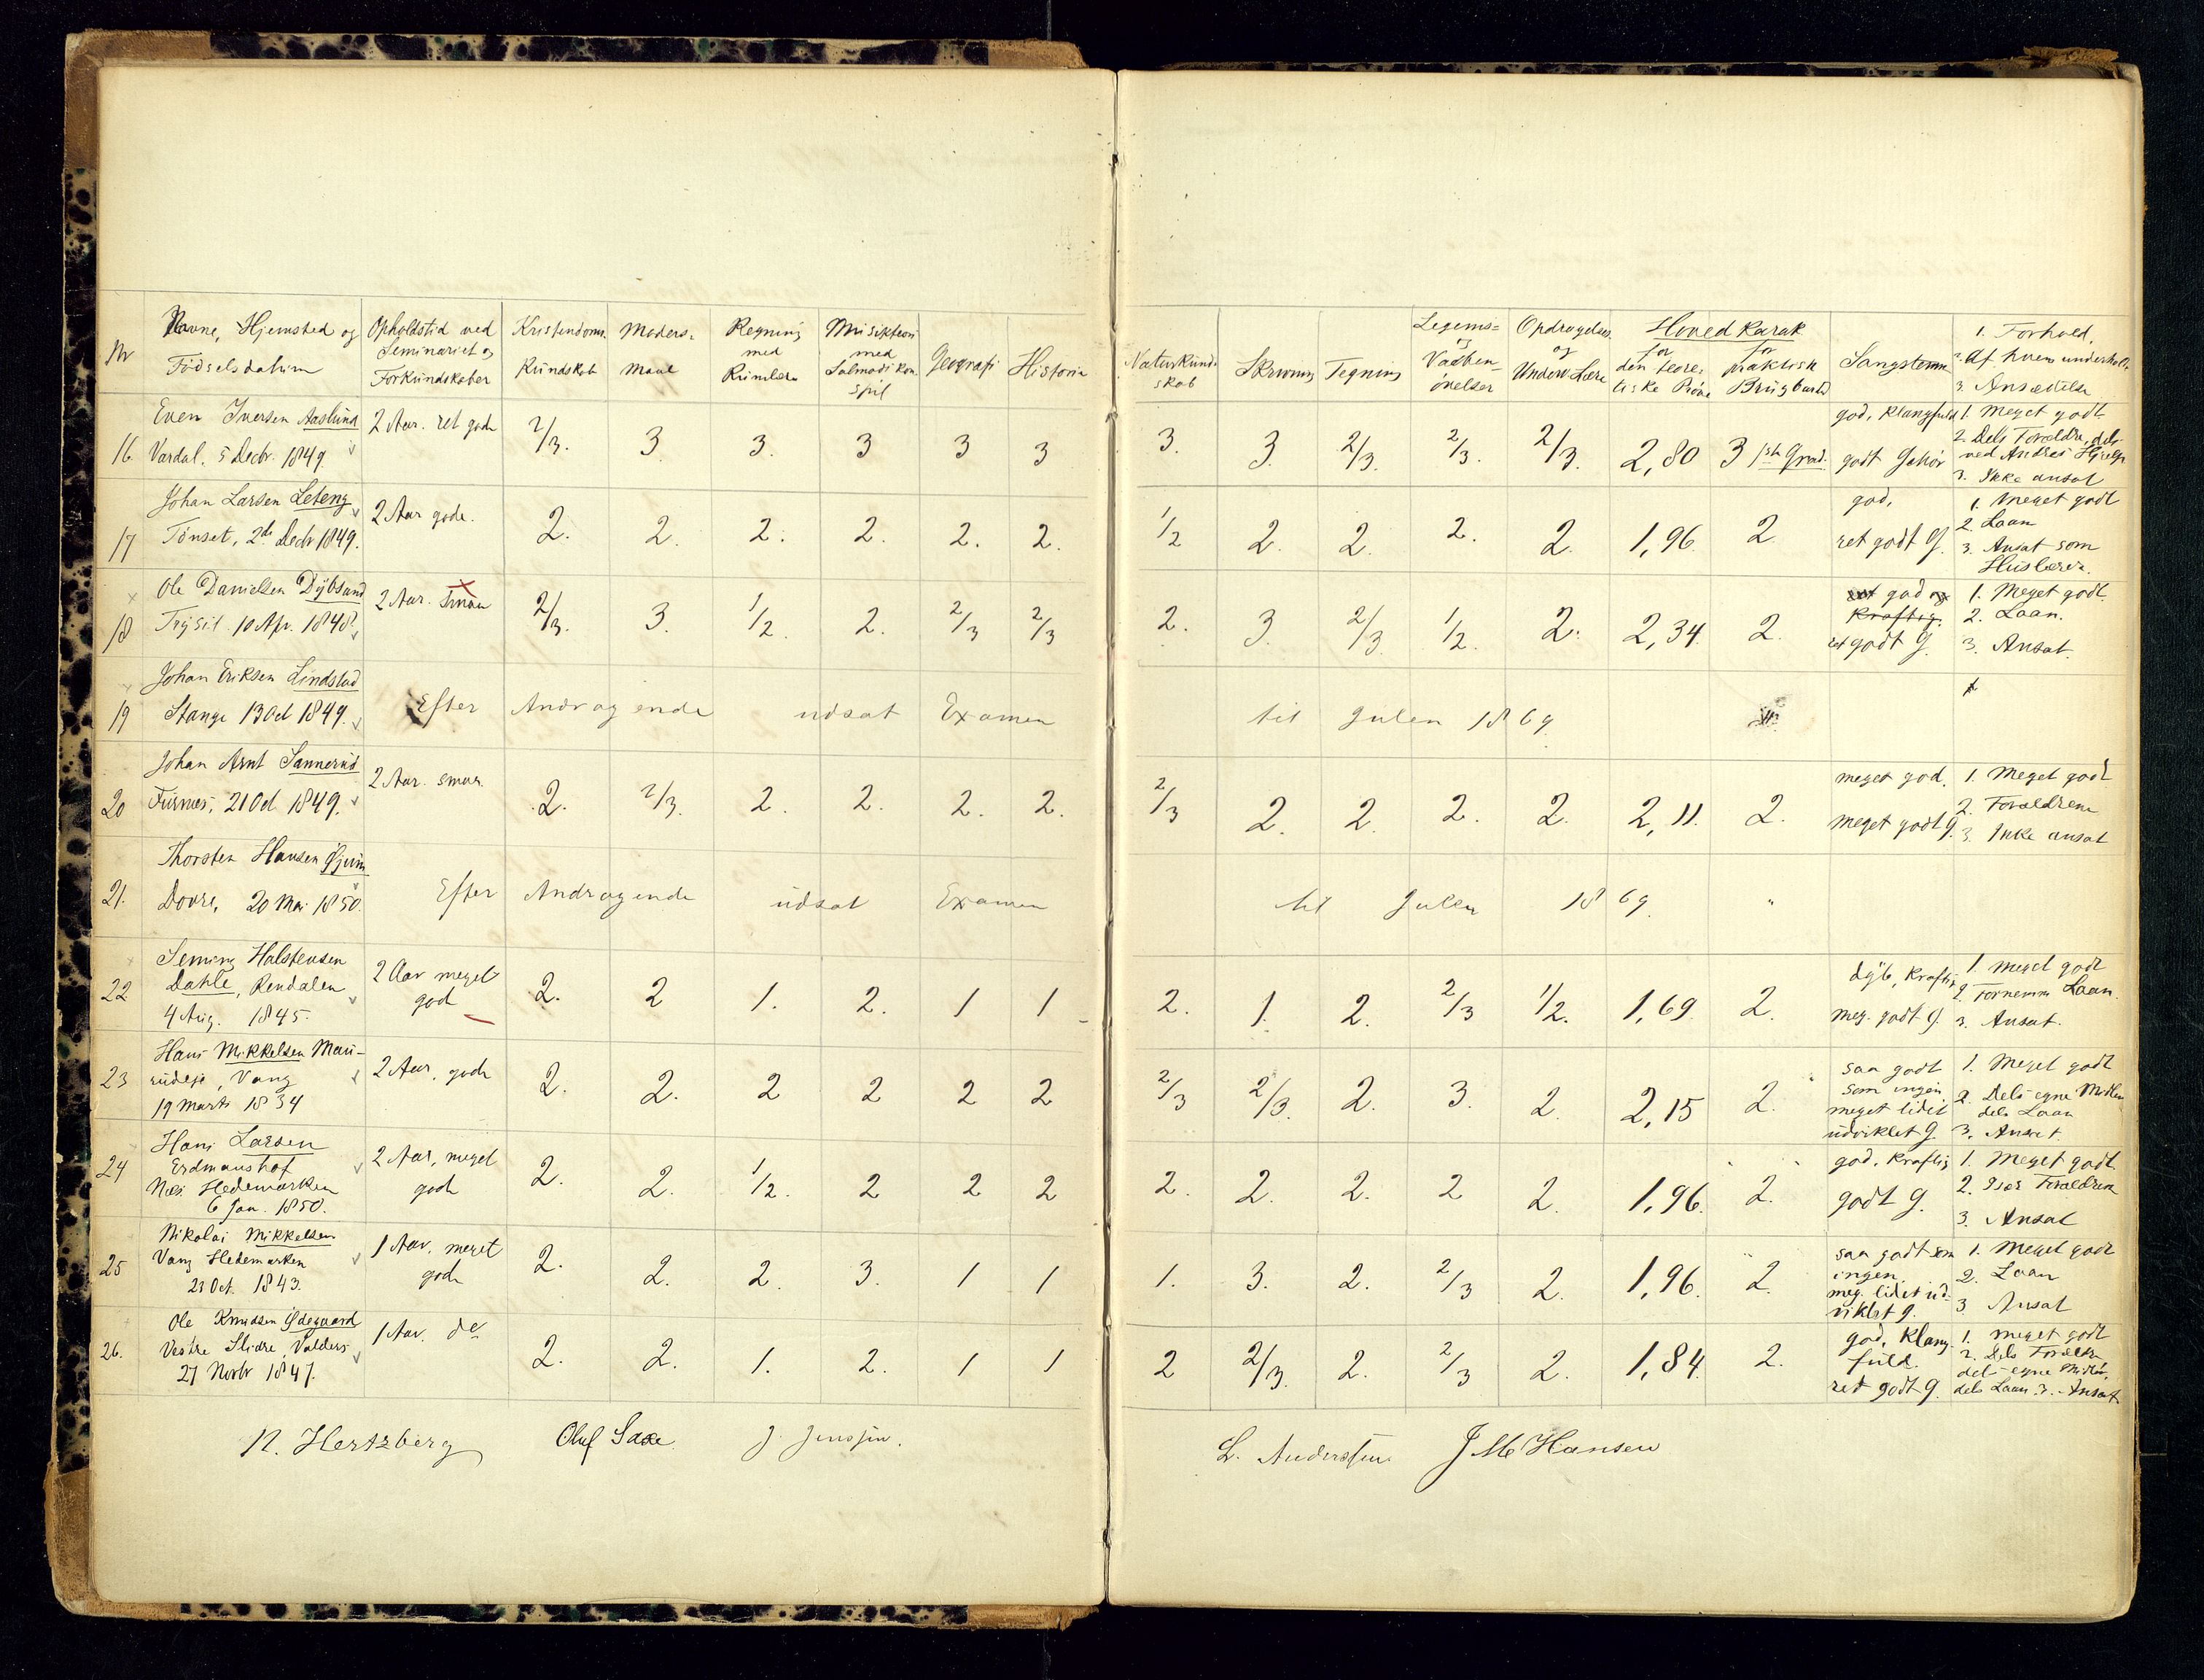 Nr
Navne, Hjemsted og
Födselsdatum
Opholdstid ved
Seminariet og
Forkundskaber
Kristendoms-
Kundskab
Moders-
maal
Regning
med
Rumlære
Musiktheori
med
Salmodikon-
spil
Geografi
Historie
Naturkund-
skab
Skrivning
Tegning
Legems=
og
Vaaben-
övelser
Opdragelses
og
Underv. Lære
Hovedkarak
for
den teore-
tiske Pröve
for
praktisk
Brugbarhed
Sangstemme
1. Forhold.
2. Af hvem underholdt
3. Ansættelse
16 Even Iversen Aaslund
Vardal. 5 Decbr. 1849.
2 Aar. ret gode
2/3. 3 3. 3 3 3 3. 3. 2/3. 2/3. 2/3. 2,80 3 1ste Grad.
god, klangfuld
godt Gehör
1. Meget godt
2. Dels Forældre, dels
ved Andres Hjælp
3. Ikke ansat
17 Johan Larsen Leteng
Tönset, 2de Decbr 1849.
2 Aar gode.
2. 2. 2. 2. 2. 2. 1/2 2. 2. 2. 2. 1,96 2
god,
ret godt G.
1. Meget godt
2. Laan
3. Ansat som
Huslærer.
18 Ole Danielsen Dybsand
Trysil 10 Apr. 1848.
2 Aar. smaa
2/3. 3. 1/2. 2. 2/3 2/3 2. 3. 2/3. 1/2. 2. 2,34. 2.
ret god og
kraftig.
ret godt G.
1. Meget godt.
2. Laan.
3. Ansat.
19 Johan Eriksen Lindstad
Stange 13 Oct 1849.
Efter Andragende udsat Examen til Julen 1869
20 Johan Arnt Sannerud
Furnæs, 21 Oct 1849.
2 Aar. smaa.
2. 2/3. 2. 2. 2. 2. 2/3 2. 2. 2. 2. 2,11. 2.
meget god.
meget godt G.
1. Meget godt
2. Forældrene
3. Ikke ansat
21. Thorsten Hansen Gjeim
Dovre, 20 Mai 1850.
Efter Andragende udsat Examen til Julen 1869. "
22 Seming Halstensen
Dahle, Rendalen
4 Aug. 1845.
2 Aar meget
gode
2. 2 1. 2. 1 1 2. 1. 2. 2/3 1/2. 1,69 2.
dyb, kraftig
meg. godt G.
1. Meget godt
2. Fornemm. Laan.
3. Ansat.
23 Hans Mikkelsen Mau-
rudeje, Vang
19 Marts 1834
2 Aar, gode
2. 2. 2 2 2 2 2/3 2/3. 2. 3. 2. 2,15 2.
saa godt
som ingen,
meget lidet
udviklet G.
1. Meget godt
2. Dels egne Midler
dels Laan
3. Ansat.
24 Hans Larsen
Erdmannshof
Næs Hedemarken
6 Jan. 1850.
2 Aar, meget
gode
2. 2. 1/2. 2 2 2 2. 2. 2. 2 2. 1,96. 2.
god, kraftig
godt G.
1. Meget godt.
2. Forældrene
3. Ansat
25 Nikolai Mikkelsen
Vang Hedemarken
23 Oct. 1843.
1 Aar, meget
gode
2. 2. 2. 3. 1 1 1. 3. 2. 2/3 2. 1,96. 2.
saa godt som
ingen,
meg. lidet ud-
viklet G.
1. Meget godt
2. Laan
3. Ansat
26. Ole Knudsen Ödegaard
Vestre Slidre, Valders
27 Novbr 1847.
1 Aar. do
2. 2. 1. 2. 1 1 2 2/3. 2. 2/3 2. 1,84. 2.
god, klang-
fuld.
ret godt G.
1. Meget godt
2. Dels Forældre
dels egne Midler,
dels Laan. 3. Ansat
N. Hertzberg Oluf Saxe J. Jenssen.
L. Anderssen J M Hansen